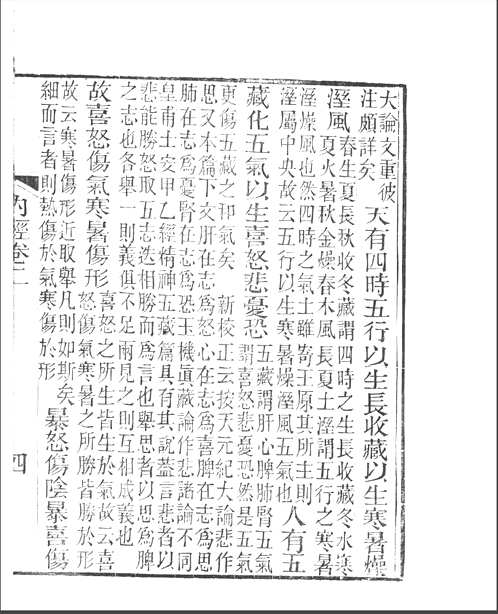 大論文重彼
注頗詳矣
天有四時五行以生長收藏以生寒暑燥
溼風
春生夏長秋收冬藏謂四時之生長收藏冬水寒
夏火暑秋金燥春木風長夏土溼謂五行之寒暑
溼燥風也然四時之氣土雖寄王原其所主則
溼屬中央故云五行以生寒暑燥溼風五氣也
人有五
藏化五氣以生喜怒悲憂恐
五藏謂肝心脾肺腎五氣
謂喜怒悲憂恐然是五氣
更傷五藏之和氣矣 新校正云按天元紀大論悲作
思又本篇下文肝在志爲怒心在志爲喜脾在志爲思
肺在志爲憂腎在志爲恐玉機眞藏論作悲諸論不同
皇甫士安甲乙經精神五藏篇具有其說蓋言悲者以
悲能勝怒取五志迭相勝而爲言也舉思者以思爲脾
之志也各舉一則義俱不足兩見之則互相成義也
故喜怒傷氣寒暑傷形
喜怒之所生皆生於氣故云喜
怒傷氣寒暑之所勝皆勝於形
故云寒暑傷形近取舉凡則如斯矣
細而言者則熱傷於氣寒傷於形
暴怒傷陰暴喜傷
內經卷二
四